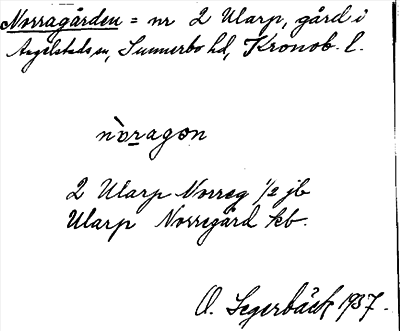 Norragården = nr 2 Ularp, gård i
Angelstads sn, Sunnerbo hd, Kronob. l.
nòragon
2 Ularp Norreg 1/2 jb
Ularp Norregård kb.
O. Segerbäck 1937.